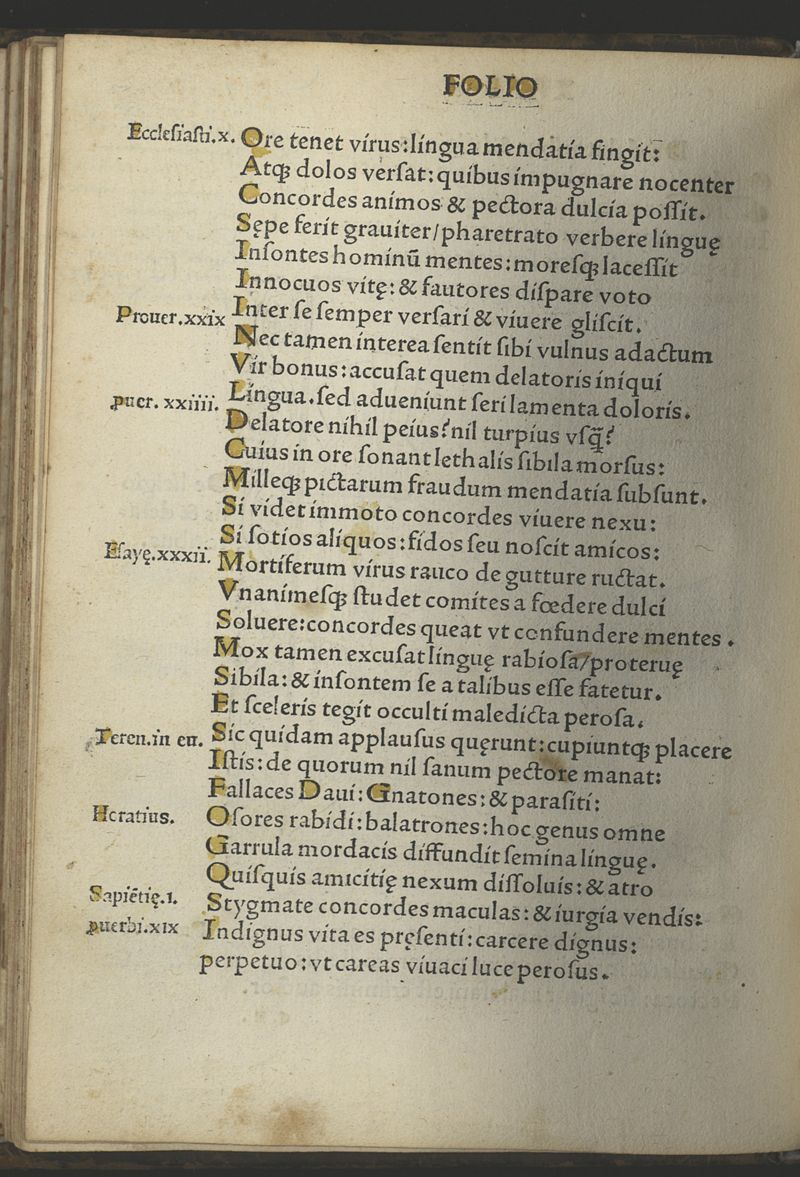 FOLIO
Ecclesiasti.x. Ore tenet virus: lingua mendatia fingit:
Atqꝫ dolos verſat: quibus impugnare nocenter
Concordes animos & pectora dulcia poſſit.
Sępe ferit grauiter/pharetrato verbere linguę
Inſontes hominū mentes: moreſqꝫ laceſſit
Innocuos vitę: & fautores diſpare voto
Prouer.xxix Inter ſe ſemper verſari & viuere gliſcit.
Nec tamen interea ſentit ſibi vulnus adactum
Vir bonus: accuſat quem delatoris iniqui
ꝓuer. xxiiii. Lingua. ſed adueniunt feri lamenta doloris.
Delatore nihil peius? nil turpius vſq̄?
Cuius in ore ſonant lethalis ſibila morſus:
Milleqꝫ pictarum fraudum mendatia ſubſunt.
Si videt immoto concordes viuere nexu:
Si ſotios aliquos: fidos ſeu noſcit amicos:
Eſayę.xxxii. Mortiferum virus rauco de gutture ructat.
Vnanimeſqꝫ ſtudet comites a fœdere dulci
Soluere: concordes queat vt confundere mentes.
Mox tamen excuſat linguę rabioſa/proteruę
Sibila: & inſontem ſe a talibus eſſe fatetur.
Et ſceleris tegit occulti maledicta peroſa.
Teren.in eu. Sic quidam applauſus quęrunt: cupiuntqꝫ placere
Iſtis: de quorum nil ſanum pectore manat:
Fallaces Daui: Gnatones: & paraſiti:
Horatius. Oſores rabidi: balatrones: hoc genus omne
Garrula mordacis diffundit femina linguę.
Quiſquis amicitię nexum diſſoluis: & atro
Sapiētię.1. Stygmate concordes maculas: & iurgia vendis:
ꝓuerbi.xix Indignus vita es pręſenti: carcere dignus:
perpetuo: vt careas viuaci luce peroſus.